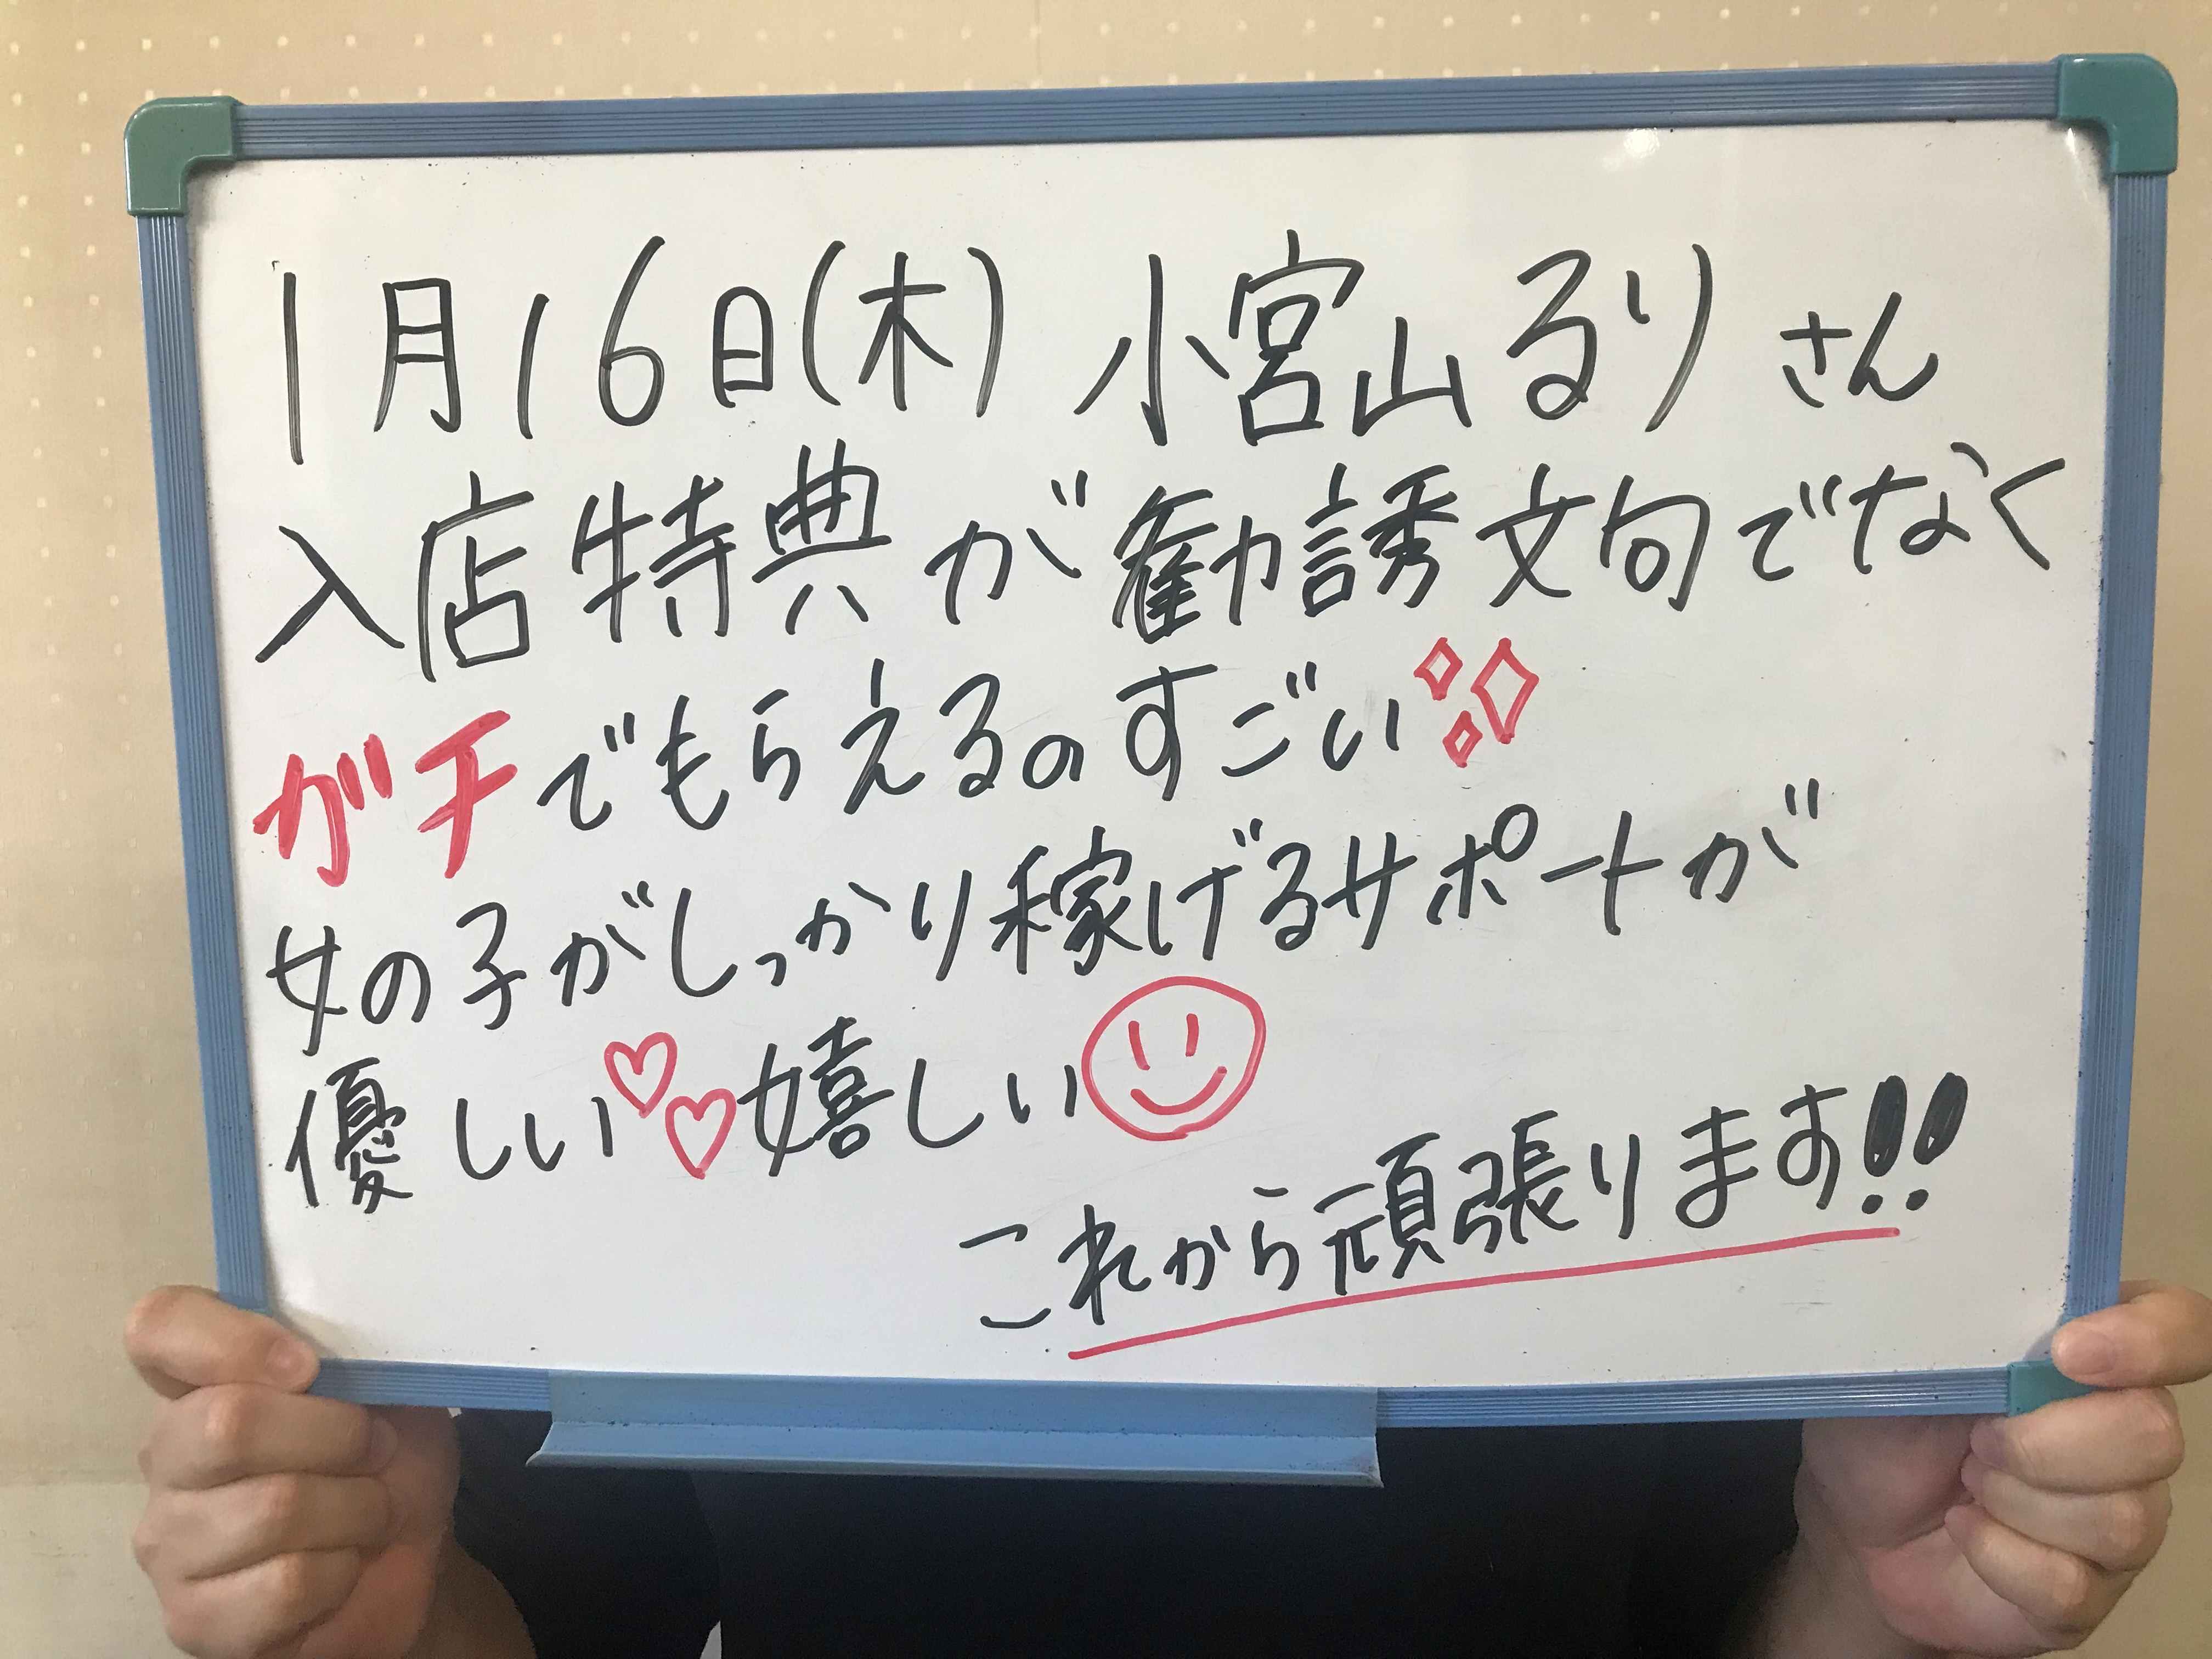 1月16日(木) 小宮山るりさん
入店特典が勧誘文句でなく
ガチでもらえるのすごい
女の子がしっかり稼げるサポートが
優しい♡♡嬉しい
これから頑張ります!!